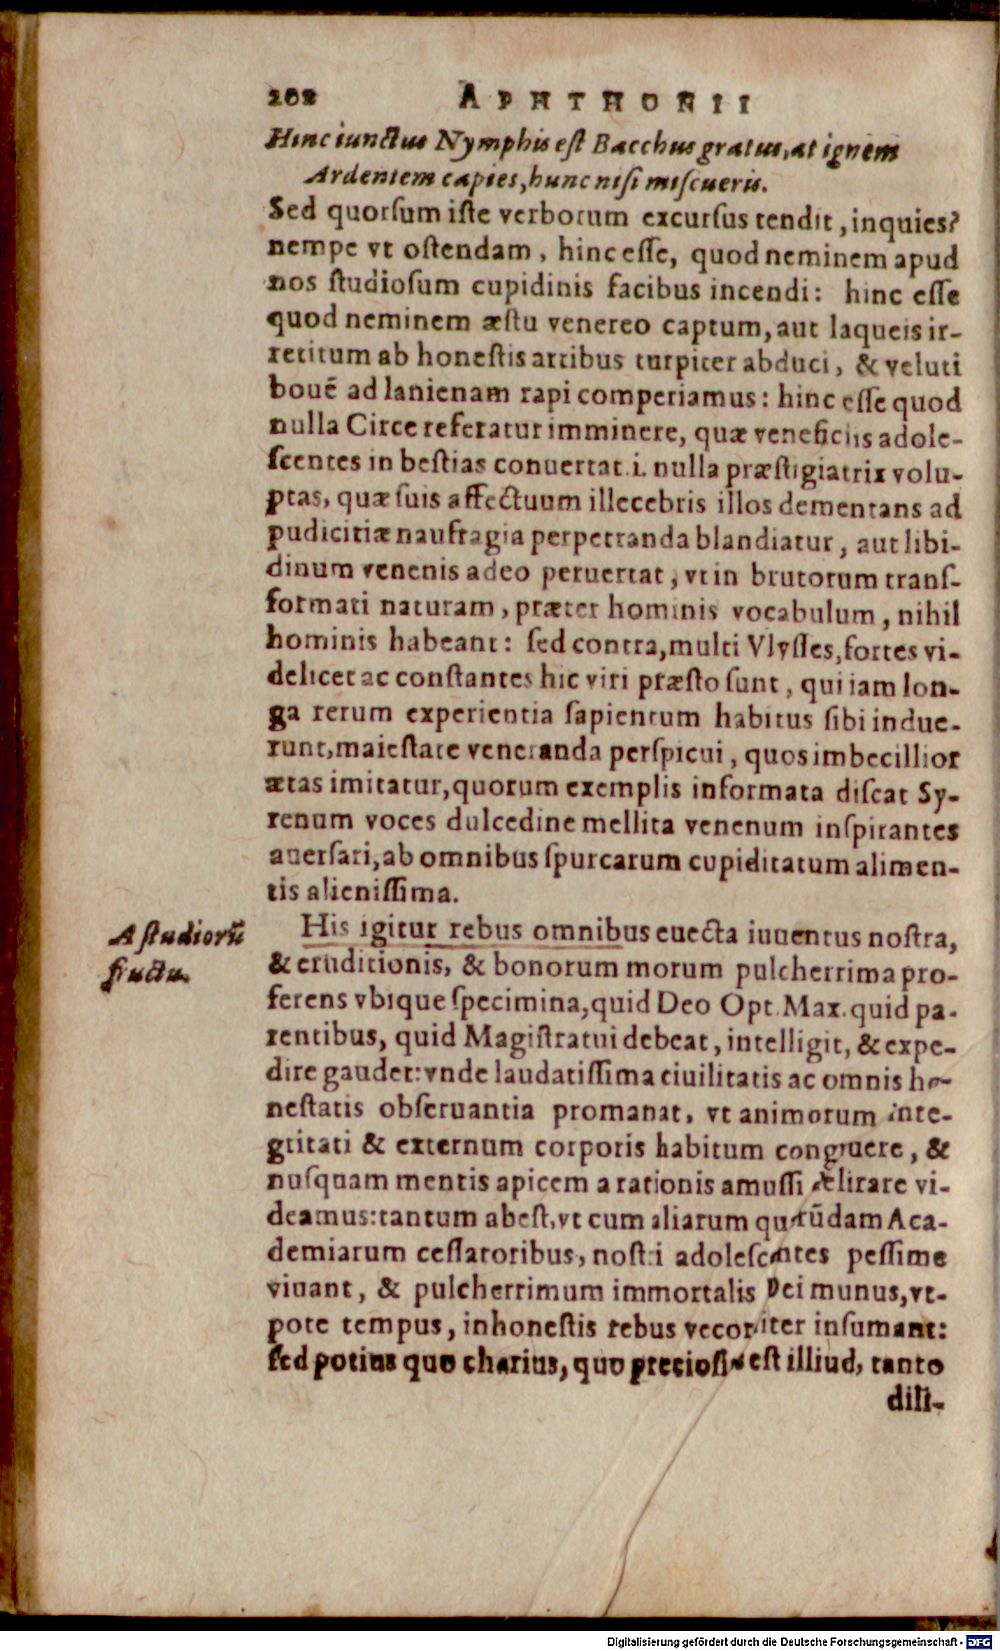 202 APHTHONII
Hinc iunctus Nymphis est Bacchus gratus, at ignem
Ardentem capies, hunc nisi miscueris.
Sed quorsum iste verborum excursus tendit, inquies?
nempe vt ostendam, hinc esse, quod neminem apud
nos studiosum cupidinis facibus incendi: hinc esse
quod neminem æstu venereo captum, aut laqueis ir-
retitum ab honestis artibus turpiter abduci, & veluti
bouē ad lanienam rapi comperiamus: hinc esse quod
nulla Circe referatur imminere, quæ veneficiis adole-
scentes in bestias conuertat .i. nulla præstigiatrix volu-
ptas, quæ suis affectuum illecebris illos dementans ad
pudicitiæ naufragia perpetranda blandiatur, aut libi-
dinum venenis adeo peruertat, vt in brutorum trans-
formati naturam, præter hominis vocabulum, nihil
hominis habeant: sed contra, multi Vlysses, fortes vi-
delicet ac constantes hic viri præsto sunt, qui iam lon-
ga rerum experientia sapientum habitus sibi indue-
runt, maiestate veneranda perspicui, quos imbecillior
ætas imitatur, quorum exemplis informata discat Sy-
renum voces dulcedine mellita venenum inspirantes
auersari, ab omnibus spurcarum cupiditatum alimen-
tis alienissima.
A studiorū
fructu.
His igitur rebus omnibus euecta iuuentus nostra,
& eruditionis, & bonorum morum pulcherrima pro-
ferens vbique specimina, quid Deo Opt. Max. quid pa-
rentibus, quid Magistratui debeat, intelligit, & expe-
dire gaudet: vnde laudatissima ciuilitatis ac omnis ho-
nestatis obseruantia promanat, vt animorum inte-
gritati & externum corporis habitum congruere, &
nusquam mentis apicem a rationis amussi delirare vi-
deamus: tantum abest, vt cum aliarum quarūdam Aca-
demiarum cessatoribus, nostri adolescentes pessime
viuant, & pulcherrimum immortalis Dei munus, vt-
pote tempus, inhonestis rebus vecorditer insumant:
sed potius quo charius, quo preciosius est illiud, tanto
dili-
Digitalisierung gefördert durch die Deutsche Forschungsgemeinschaft - DFG